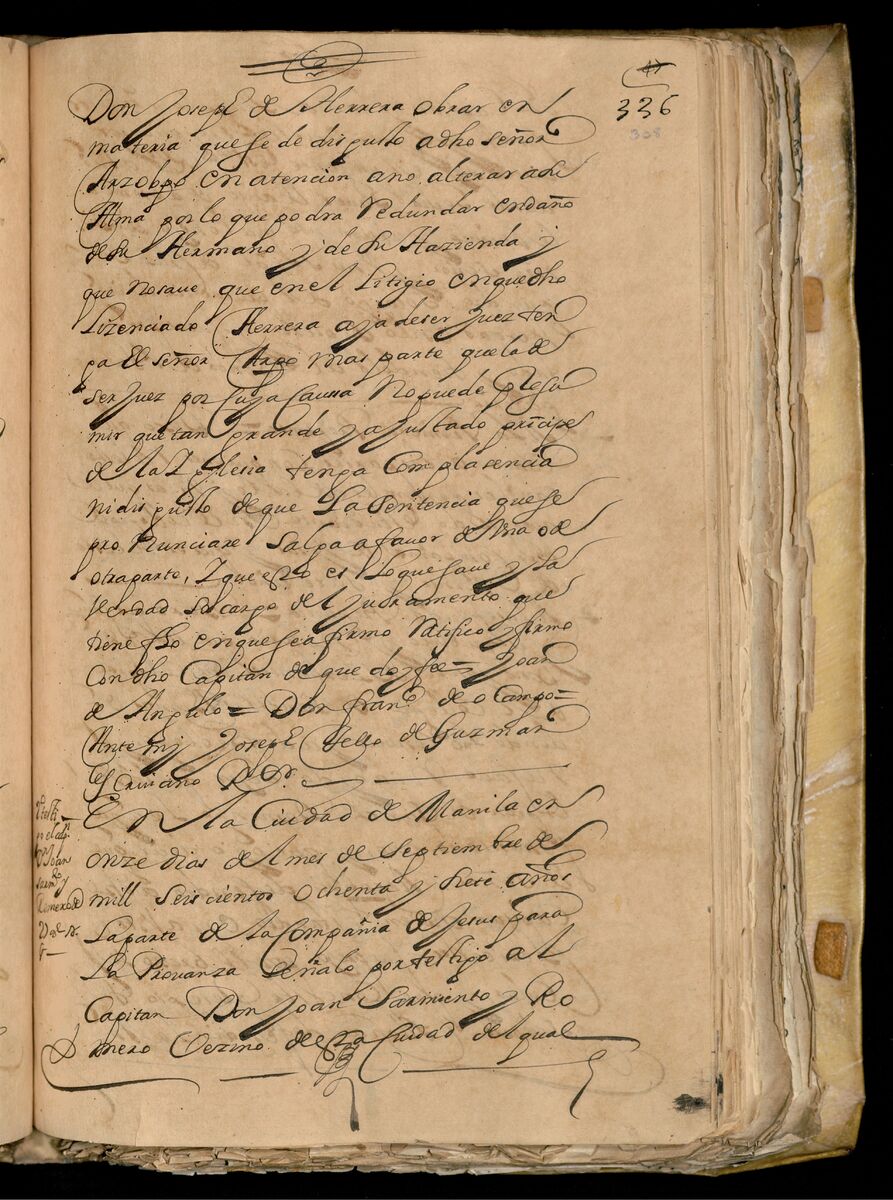 336
308
Don Joseph de Herrera obrar en
materia que se de disgusto a dho señor
Arzobpo en atencion a no alterar a su
Alma por lo que podra redundar en daño
de su Hermano y de su Hazienda y
que no saue que en el Litigio en que dho
Lizenciado Herrera aja de ser Juez ten
ga El señor Arpo mas parte que la de
ser Juez por cuya Caussa No puede presu
mir que tan grande y ajustado principe
de la Iglesia tenga Complasencia
ni disgusto de que La sentencia que se
pronunciare salga a fauor de Vna o de
otra parte, Y que esto es lo que saue y la
Verdad so cargo del Juramento que
tiene fho en que se afirmo Ratifico y firmo
Con dho Capitan de que doy fee = Joan
de Angulo = Don franco de o Campo =
Ante mj Joseph Tello de Guzman
escriuano Rr
En la Ciudad de Manila en
onze dias del mes de septiembre de
mill seiscientos ochenta y siete años
La parte de la Compañia de Jesus para
La Prouanza señalo por testigo al
Capitan Don Joan Sarmiento y Ro
mero Vezino de esta Ciudad del qual